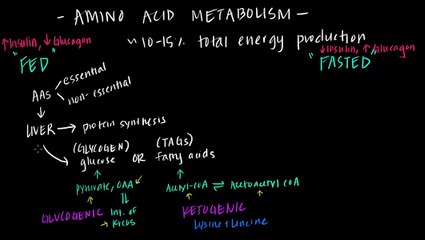 - AMINO ACID METABOLISM -
↑Insulin, ↓Glucagon
~ 10-15% total energy production
↓Insulin, ↑Glucagon
"FED"
"FASTED"
AAS
essential
non-essential
LIVER → protein synthesis
(GLYCOGEN) (TAGS)
glucose OR fatty acids
pyruvate, OAA
Acetyl-CoA ⇌ Acetoacetyl CoA
GLUCOGENIC
Int. of
→ Krebs
KETOGENIC
Lysine + Leucine